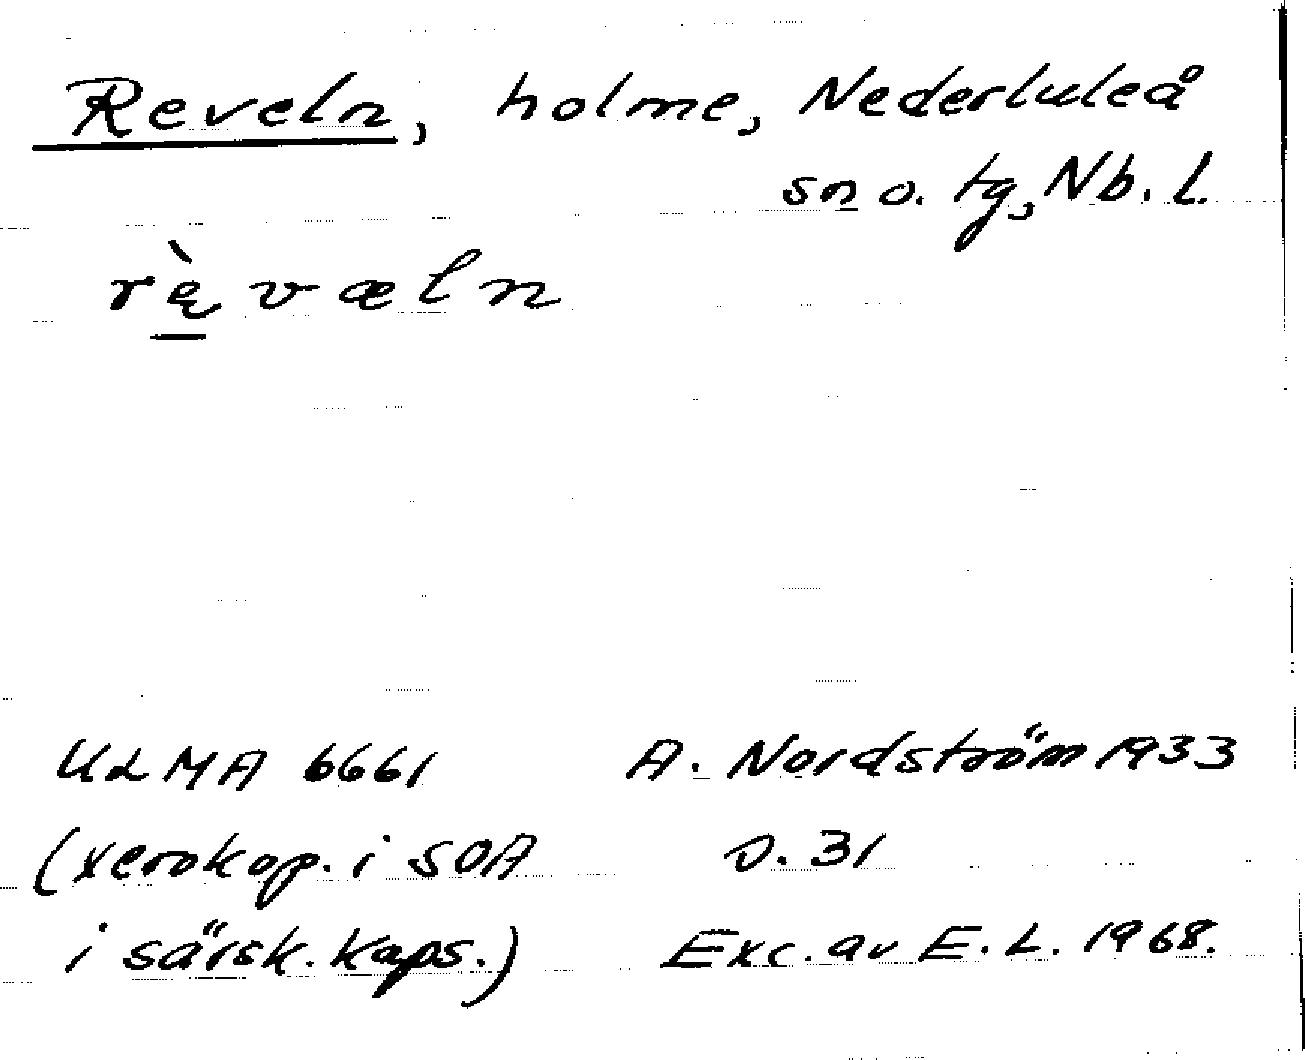 Reveln, holme, Nederluleå
sn o. tg, Nb. l.
rę̀væln
ULMA 6661 A. Nordström 1933
(xerokop. i SOA s. 31
i särsk. kaps.) Exc. av E. L. 1968.